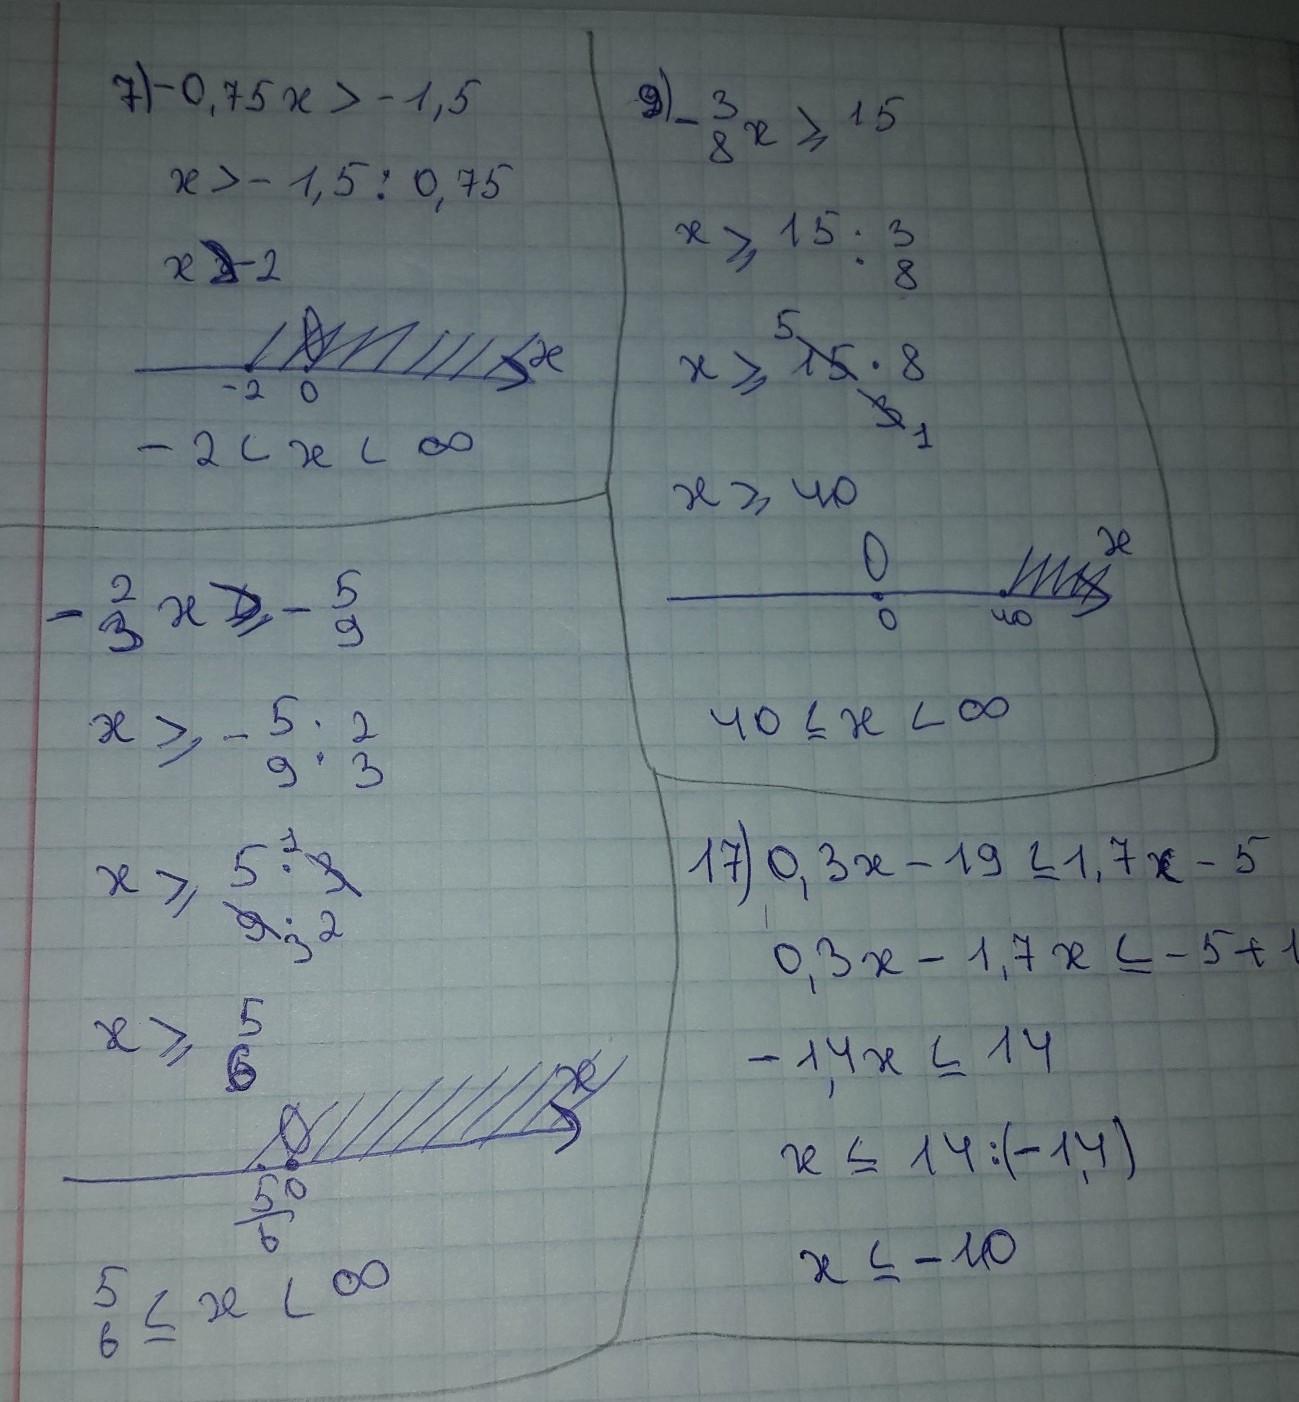 7) -0,75x > -1,5
x > - 1,5 : 0,75
x > -2
x
-2 0
- 2 < x < ∞
- 2/3 x ≥ - 5/9
x ≥ - 5/9 : 2/3
x ≥ 5 · 3 1 / 9 · 2 3
x ≥ 5/6
x
5/6 0
5/6 ≤ x < ∞
9) - 3/8 x ≥ 15
x ≥ 15 : 3/8
x ≥ 5 15 · 8 / 3 1
x ≥ 40
0 x
0 40
40 ≤ x < ∞
17) 0,3x - 19 ≤ 1,7x - 5
0,3x - 1,7x ≤ - 5 + 1
- 1,4x ≤ 14
x ≤ 14 : (-1,4)
x ≤ - 10